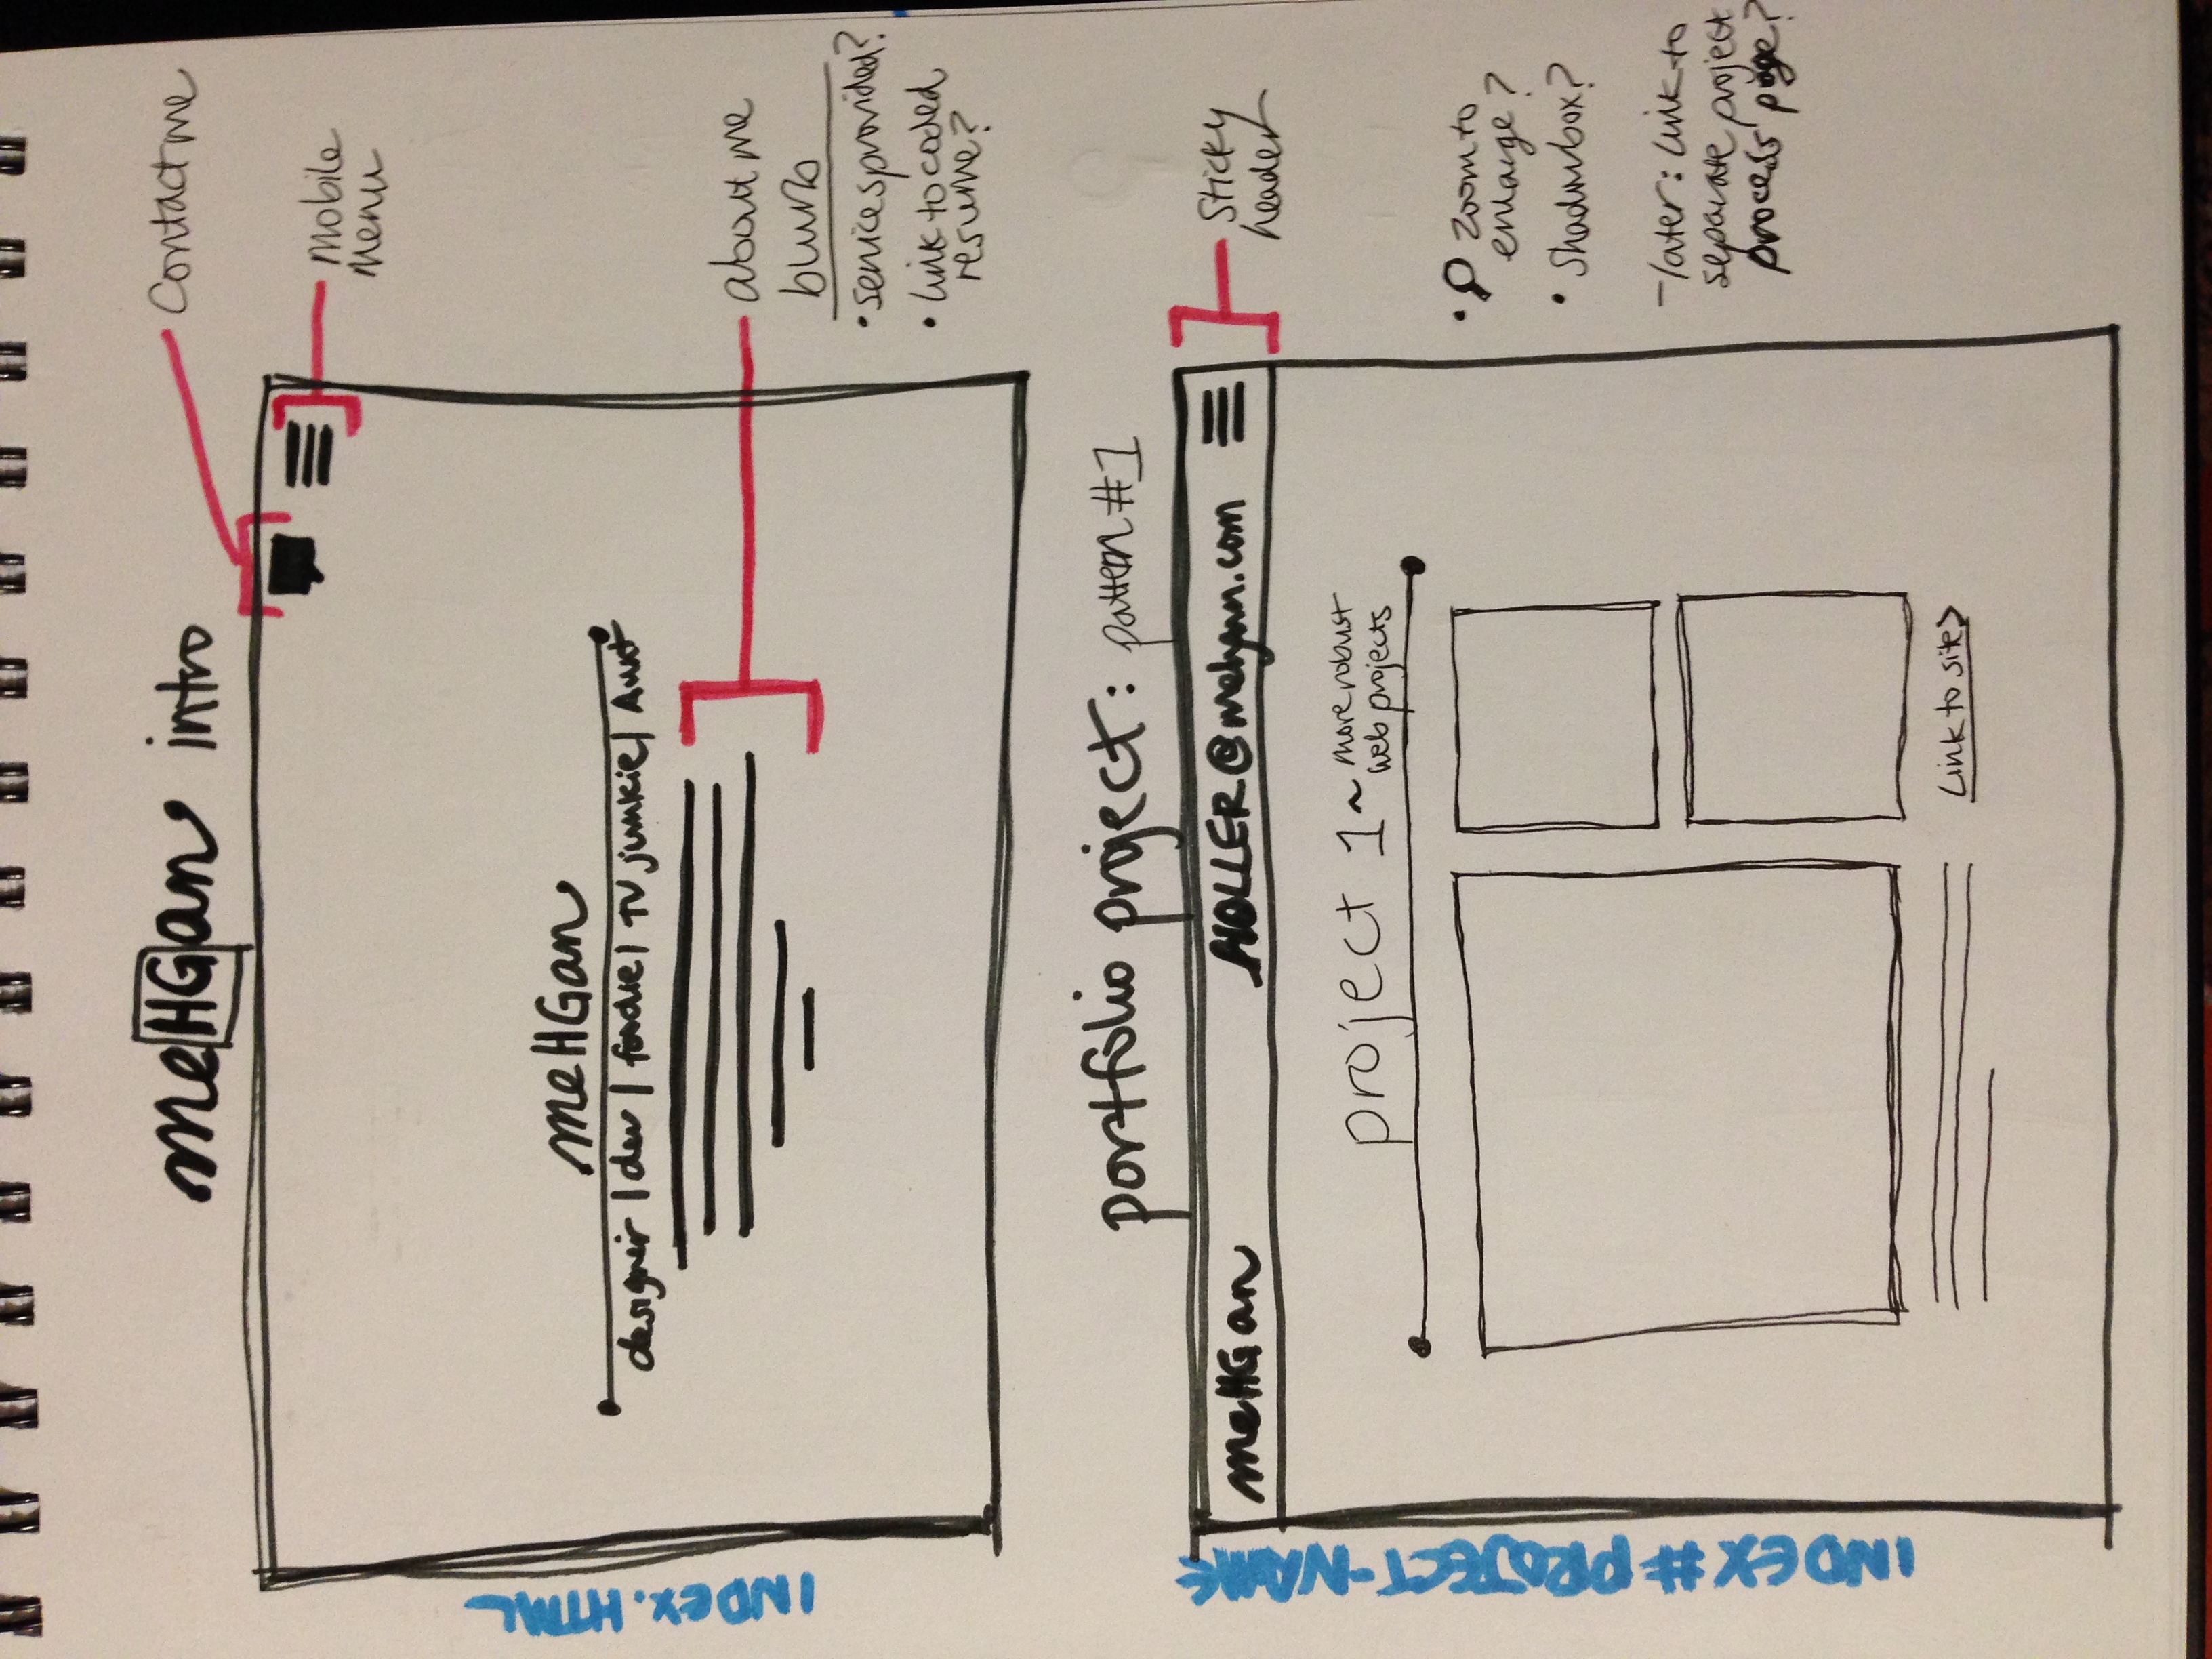 meHGan intro
Contact me
mobile
menu
INDex.HTML
meHGan
designer | dev | foodie | TV junkie | Aunt
about me
blurb
• services provided?
• link to coded
resume?
portfolio project: pattern #1
INDEX#PROJECT-NAME
meHGan HOLLER@mehgan.com
Sticky
header
project 1~ more robust
web projects
• Zoom to
enlarge?
• Shadowbox?
-later: link to
separate project
process page?
Link to site>